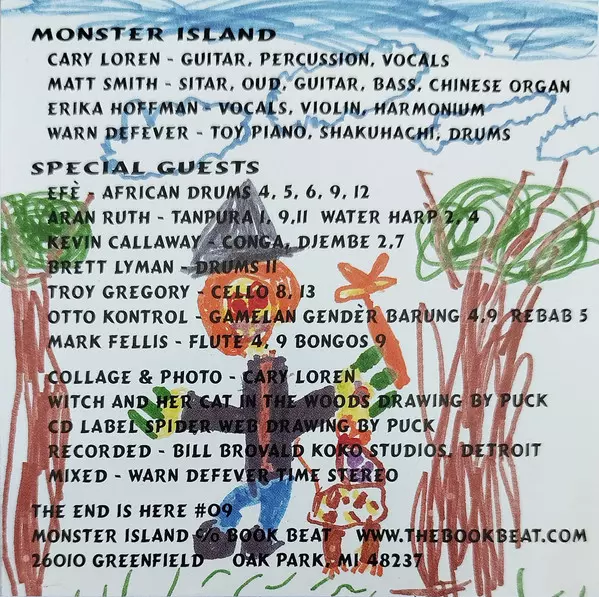 MONSTER ISLAND
CARY LOREN - GUITAR, PERCUSSION, VOCALS
MATT SMITH - SITAR, OUD, GUITAR, BASS, CHINESE ORGAN
ERIKA HOFFMAN - VOCALS, VIOLIN, HARMONIUM
WARN DEFEVER - TOY PIANO, SHAKUHACHI, DRUMS
SPECIAL GUESTS
EFÈ - AFRICAN DRUMS 4, 5, 6, 9, 12
ARAN RUTH - TANPURA 1, 9,11 WATER HARP 2, 4
KEVIN CALLAWAY - CONGA, DJEMBE 2,7
BRETT LYMAN - DRUMS 11
TROY GREGORY - CELLO 8, 13
OTTO KONTROL - GAMELAN GENDÈR BARUNG 4,9 REBAB 5
MARK FELLIS - FLUTE 4, 9 BONGOS 9
COLLAGE & PHOTO - CARY LOREN
WITCH AND HER CAT IN THE WOODS DRAWING BY PUCK
CD LABEL SPIDER WEB DRAWING BY PUCK
RECORDED - BILL BROVALD KOKO STUDIOS, DETROIT
MIXED - WARN DEFEVER TIME STEREO
THE END IS HERE #09
MONSTER ISLAND c/o BOOK BEAT WWW.THEBOOKBEAT.COM
26010 GREENFIELD OAK PARK, MI 48237